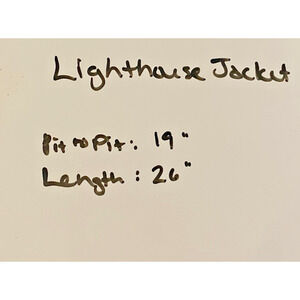 Lighthouse Jacket
Pit to Pit: 19"
Length: 26"